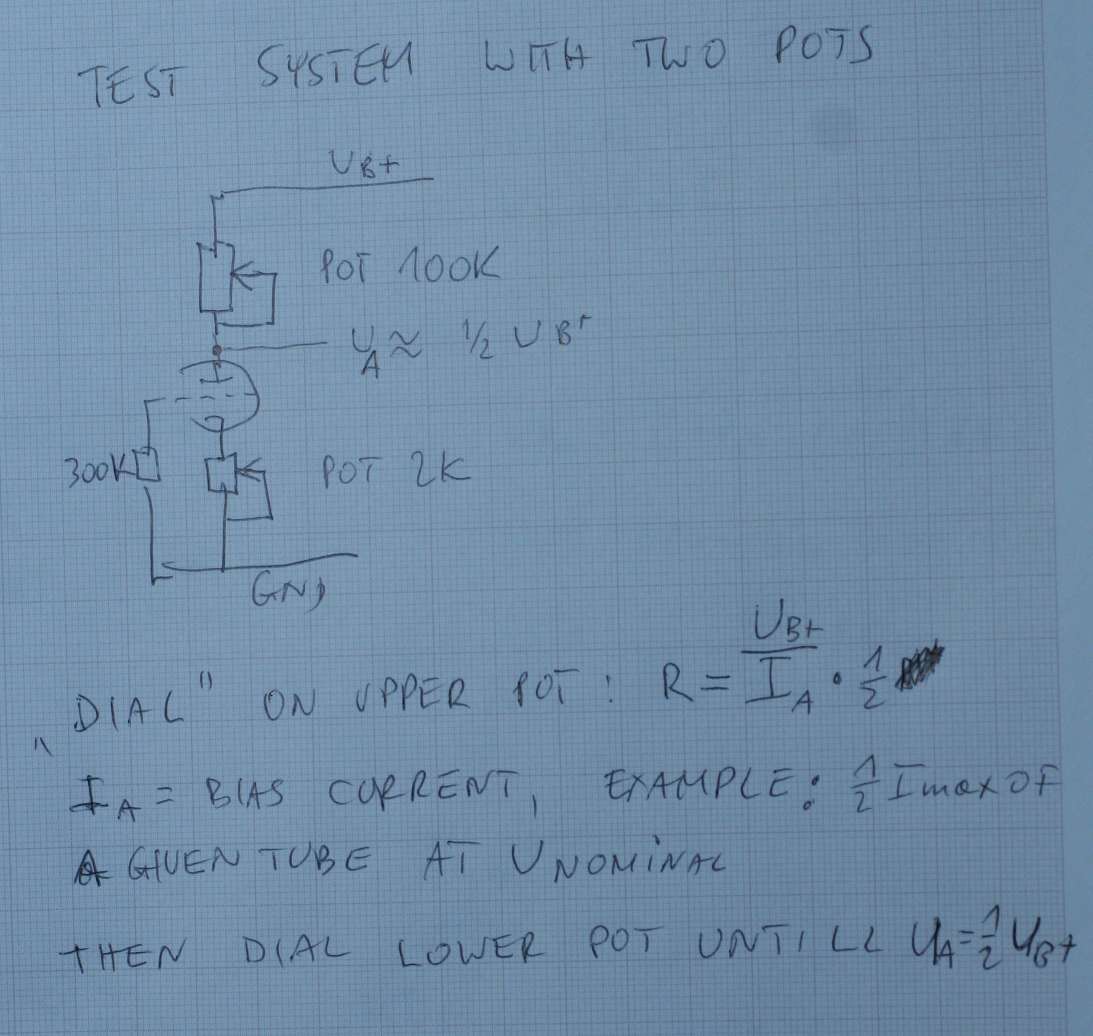 TEST SYSTEM WITH TWO POTS
UB+
POT 100K
UA ≈ 1/2 UB+
300K
POT 2K
GND
"DIAL" ON UPPER POT: R = UB+ / IA · 1/2
IA = BIAS CURRENT, EXAMPLE: 1/2 Imax OF
A GIVEN TUBE AT UNOMINAL
THEN DIAL LOWER POT UNTILL UA = 1/2 UB+